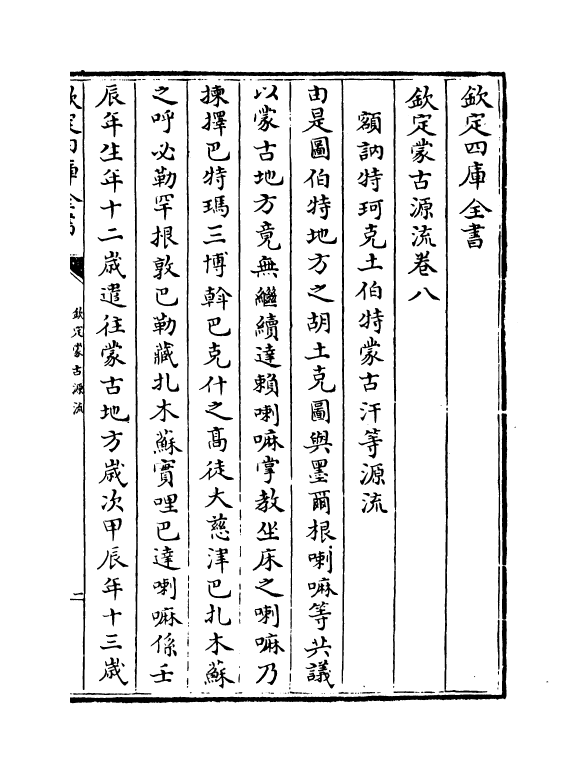 欽定四庫全書
欽定蒙古源流卷八
額訥特珂克土伯特蒙古汗等源流
由是圖伯特地方之胡土克圖與墨爾根喇嘛等共議
以蒙古地方竟無繼續達賴喇嘛掌教坐床之喇嘛乃
揀擇巴特瑪三博斡巴克什之高徒大慈津巴扎木蘇
之呼必勒罕根敦巴勒藏扎木蘇實哩巴達喇嘛係壬
辰年生年十二歲遣往蒙古地方歲次甲辰年十三歲
欽定四庫全書
欽定蒙古源流
二